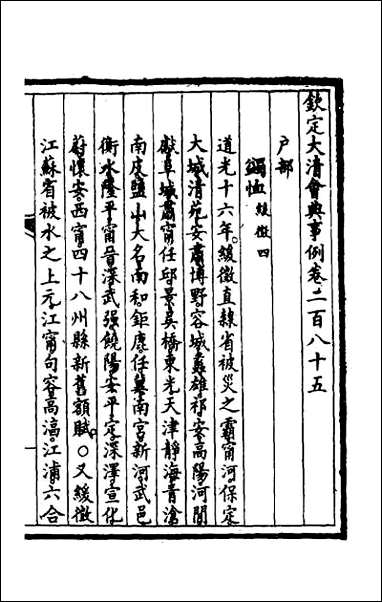 欽定大清會典事例卷二百八十五
戶部
蠲恤緩徵四
道光十六年緩徵直隸省被災之霸甯河保定
大城清苑安肅博野容城蠡雄祁安高陽河閒
獻阜城肅甯任邱景吳橋東光天津靜海青滄
南皮鹽山大名南和鉅鹿任冀南宮新河武邑
衡水隆平甯晉深武强饒陽安平定深澤宣化
蔚懷安西甯四十八州縣新舊額賦○又緩徵
江蘇省被水之上元江甯句容高淳江浦六合